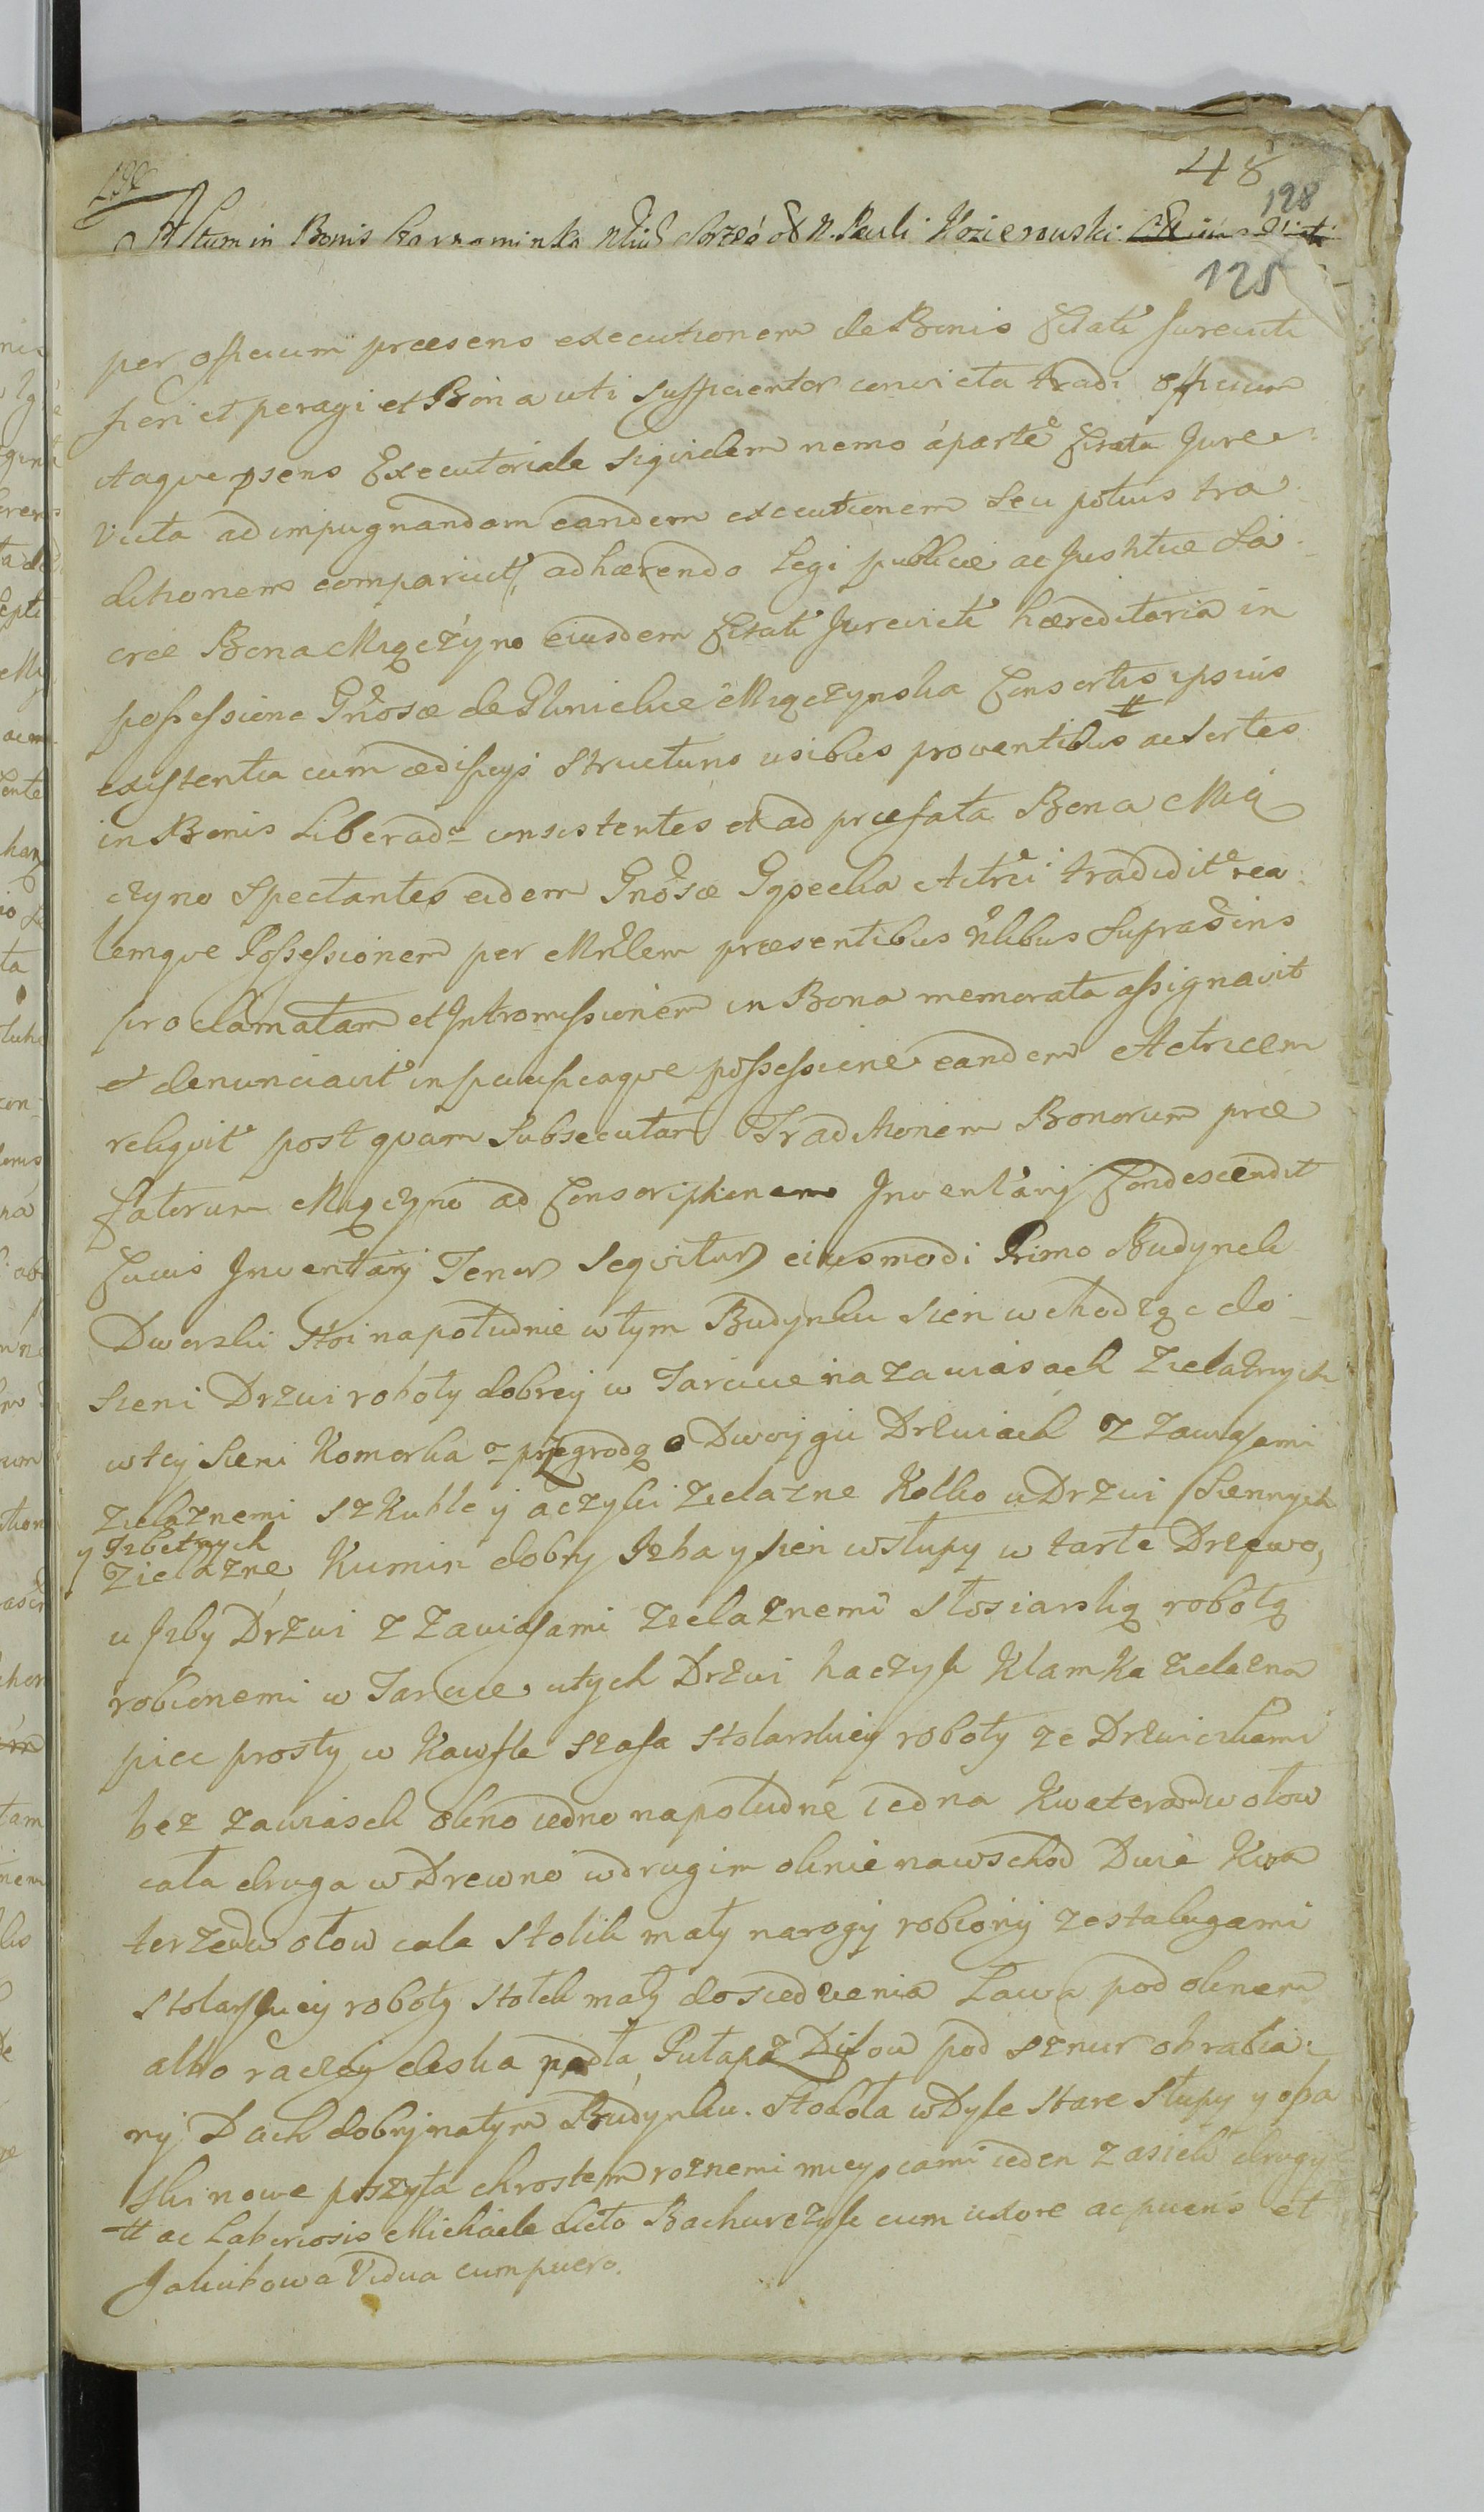 48
128
Actum in Bonis N. Pauli Kozierowski
125
per officium præsens executionem de Bonis Citati Jurevicti
fieri et peragi et Bona uti sufficienter convicta tradi officium
itaque psens Executoriale siquidem nemo á parte Citata Jure
victa ad impugnandam eandem executionem seu potius tra
ditionem comparuit, adhærendo Legi publicæ ac Justitiæ Sa
cræ Bona Mączyno eiusdem Citati Jurevicti hæreditaria in
possessione Gnosæ de Glinickie Mączynska Consortis ipsius
existentia cum ædificijs structuris usibus proventibus # ac sortes
in Bonis Liberadz consistentes et ad præfata Bona Mą
czyno spectantes eidem Gnosæ Gąsecka Actrici tradidit rea
lemque Possessionem per Mrlem præsentibus Nlibus Supradins
proclamatam et Intromissionem in Bona memorata assignavit
et denunciavit in pacificaque possessione eandem Actricem
reliquit post quam subsecutam Traditionem Bonorum præ
fatorum Mączyno ad Conscriptionem Inventarij Condescendit
Cuius Inventarij Tenor sequitur eiusmodi Primo Budynek
Dworski stoi na południe w tym Budynku sien wchodząc do
sieni Drzwi roboty dobrey w Tarcice na zawiasach zielaznych
w tey sieni Komorka o przegrodą o Dwoygu Drzwiach z zawiasami
zielaznemi szkuble y aczyki zielazne Kolko u Drzwi Siennych
y Izbetnych
zielazne, Kumin dobry Izba y sien w słupy w tarte Drzewo,
u Izby Drzwi z zawiasami zielaznemi stosiarską robotą
robionemi w Tarcice u tych Drzwi haczyk Klamka zielezna
piec prosty w Kawfle szafa stolarskiey roboty ze Drzwiczkami
bez zawiasek okno iedno na południe iedna Kwatera w ołow
cała druga w Drewno w drugim oknie na wschod Dwie Kwa
terze w ołow cale stolik mały na rogy robiony ze stalugami
stolarskiey roboty stołek mały do siedzenia Ława pod oknem
albo raczey deska podła, Pułap z Dylow pod sznur obrabia
ny Dach dobry na tym Budynku. Stodoła w Dyle stare słupy y opa
ski nowe poszyta chrostem roznemi mieyscami ieden zasiek drugy
# ac Laboriosis Michaele dicto Bachurczyk cum uxore ac pueris et
Jakubowa Vidua cum puero.